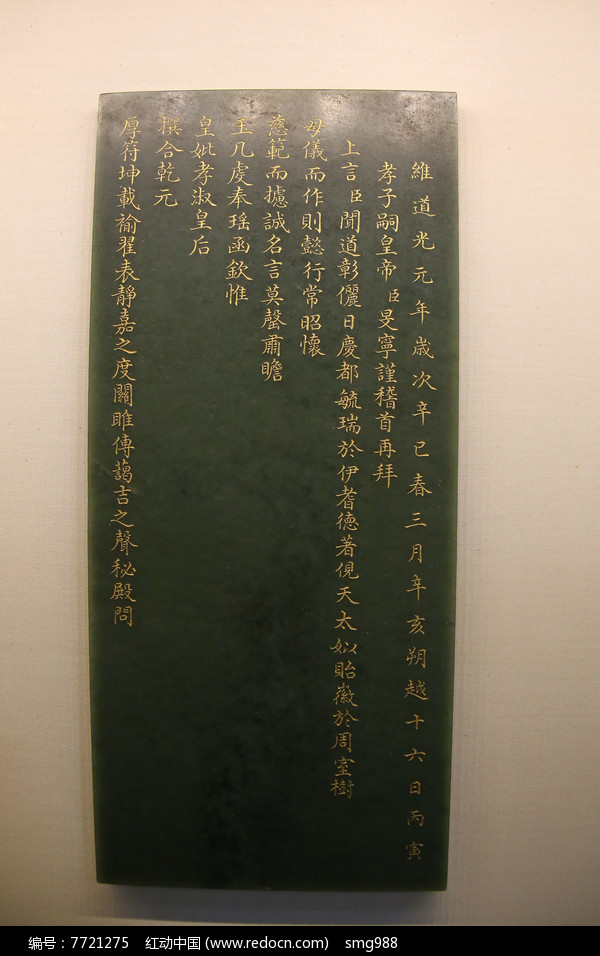 維道光元年歲次辛巳春三月辛亥朔越十六日丙寅
孝子嗣皇帝臣旻寧謹稽首再拜
上言臣聞道彰儷日慶都毓瑞於伊耆德著俔天太姒貽徽於周室樹
母儀而作則懿行常昭懷
慈範而攄誠名言莫罄肅瞻
玉几虔奉瑤函欽惟
皇妣孝淑皇后
撰合乾元
厚符坤載褕翟表靜嘉之度關雎傳藹吉之聲秘殿問
编号：7721275 红动中国 (www.redocn.com) smg988